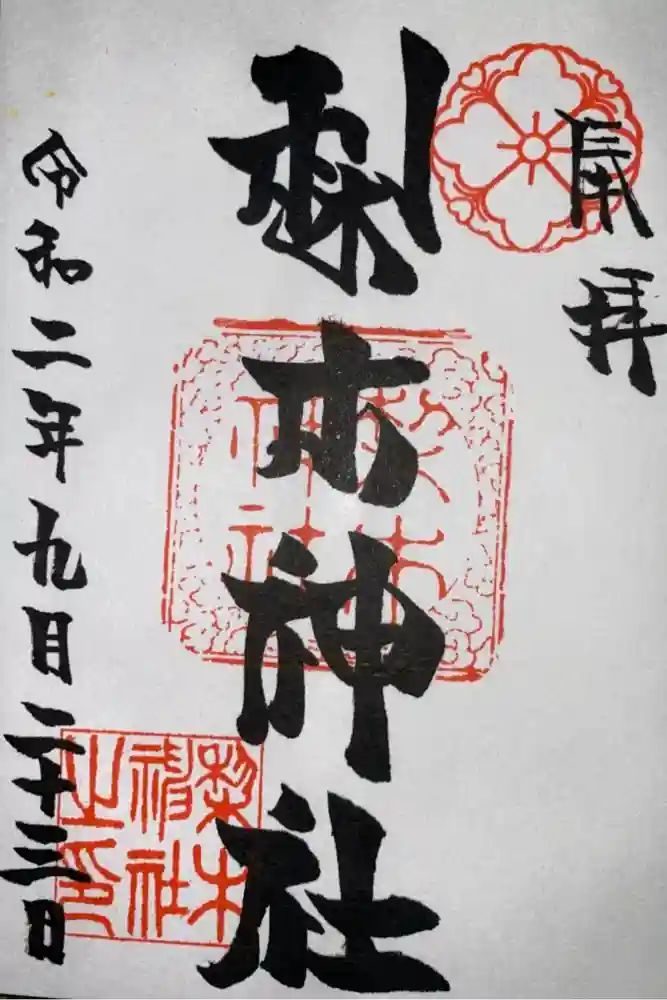 奉拝
梨木神社
梨木
神社
令和二年九月二十三日
梨木
神社
之印